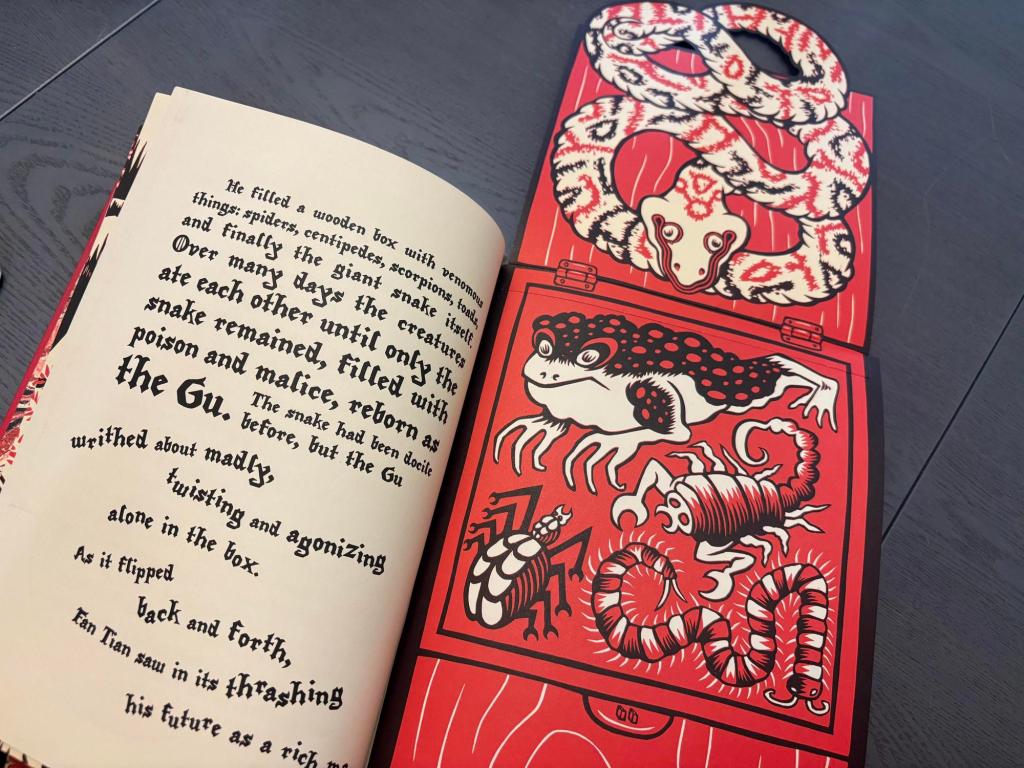 He filled a wooden box with venomous
things: spiders, centipedes, scorpions, toads,
and finally the giant snake itself.
Over many days the creatures
ate each other until only the
snake remained, filled with
poison and malice, reborn as
the Gu. The snake had been docile
before, but the Gu
writhed about madly,
twisting and agonizing
alone in the box.
As it flipped
back and forth,
Fan Tian saw in its thrashing
his future as a rich